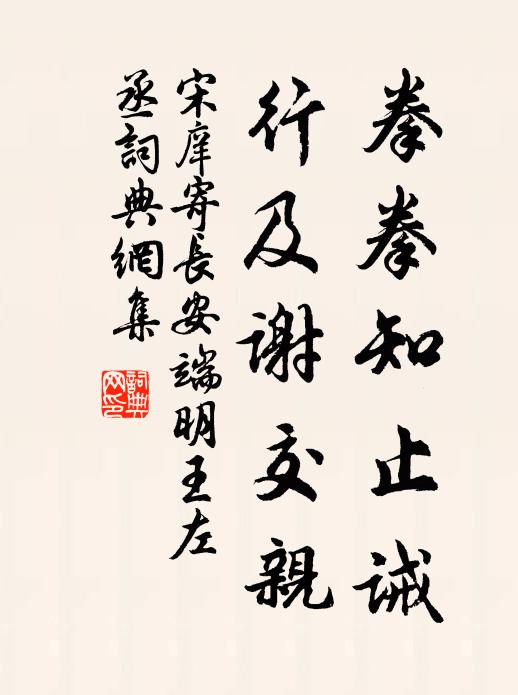 拳拳知止誡
行及謝交親
宋庠寄長安端明王左
丞詞典網集
詞典網印